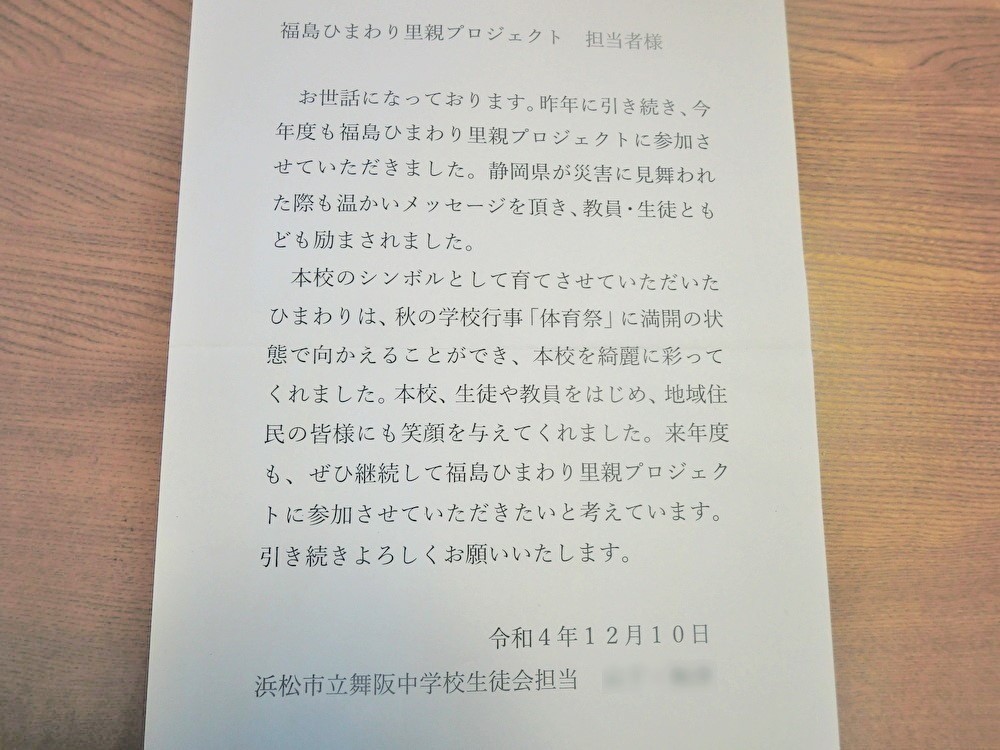 福島ひまわり里親プロジェクト　担当者様
　お世話になっております。昨年に引き続き、今
年度も福島ひまわり里親プロジェクトに参加さ
せていただきました。静岡県が災害に見舞われ
た際も温かいメッセージを頂き、教員・生徒とも
ども励まされました。
　本校のシンボルとして育てさせていただいた
ひまわりは、秋の学校行事「体育祭」に満開の状
態で向かえることができ、本校を綺麗に彩って
くれました。本校、生徒や教員をはじめ、地域住
民の皆様にも笑顔を与えてくれました。来年度
も、ぜひ継続して福島ひまわり里親プロジェク
トに参加させていただきたいと考えています。
引き続きよろしくお願いいたします。
令和４年１２月１０日
浜松市立舞阪中学校生徒会担当